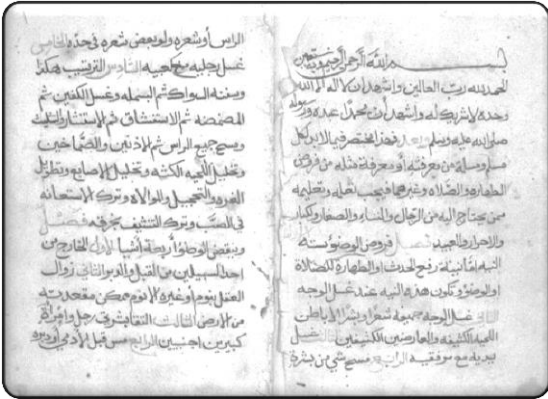 بسم الله الرحمن الرحيم وبه نستعين
الحمد لله رب العالمين واشهد ان لا اله الا الله
وحده لا شريك له واشهد ان محمدا عبده ورسوله
صلى الله عليه وسلم وبعد فهذا مختصر فيما لابد لكل
مسلم ومسلمة من معرفته أو معرفة مثله من فروض
الطهاره والصلاه وغيرهما فيجب تعلمه وتعليمه
من يحتاج اليه من الرجال والنساء والصغار والكبار
والاحرار والعبيد فصل فروض الوضوء سته
النيه اما نية رفع الحدث او الطهارة للصلاة
او الوضوء وتكون هذه النيه عند غسل الوجه
الثاني غسل الوجه جميعه شعرا وبشرا الا باطن
اللحيه الكثيفه والعارضين الكثيفين الثالث غسل
يديه مع مرفقيه الرابع مسح شي من بشرة
الراس أو شعره ولو بعض شعره في حده الخامس
غسل رجليه مع كعبيه السادس الترتيب هكذا
وسننه السواك ثم البسمله وغسل الكفين ثم
المضمضه ثم الاستنشاق ثم الاستنثار
ومسح جميع الراس ثم الاذنين والصماخين
وتخليل اللحيه الكثه وتخليل الاصابع وتطويل
الغره والتحجيل والموالاه وترك الاستعانه
في الصب وترك التنشيف بخرقه فصل
وينقض الوضوء أربعة أشيا الاول الخارج من
احد السبيلين من القبل والدبر الثاني زوال
العقل بنوم أو غيره الا نوم ممكن مقعدته
من الارض الثالث التقا بشرتي رجل وامرأة
كبيرين اجنبيين الرابع مس قبل الآدمي أو دبره